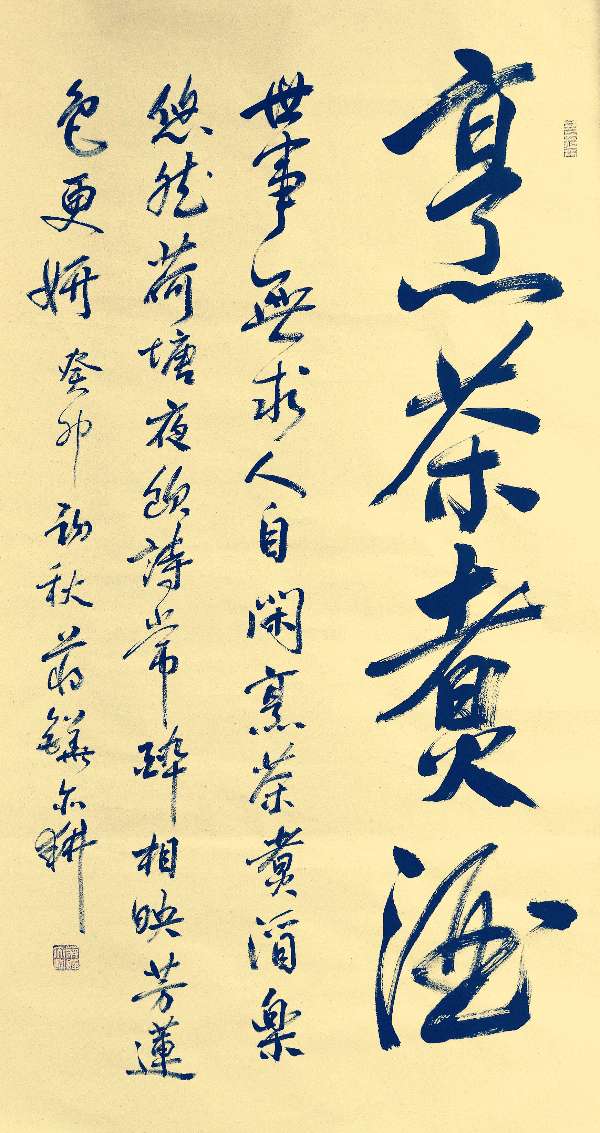 烹茶煮酒
世事無求人自閑烹茶煮酒樂
悠然荷塘夜飲詩常醉相映芳蓮
色更妍癸卯初秋蔣鏵尔耕